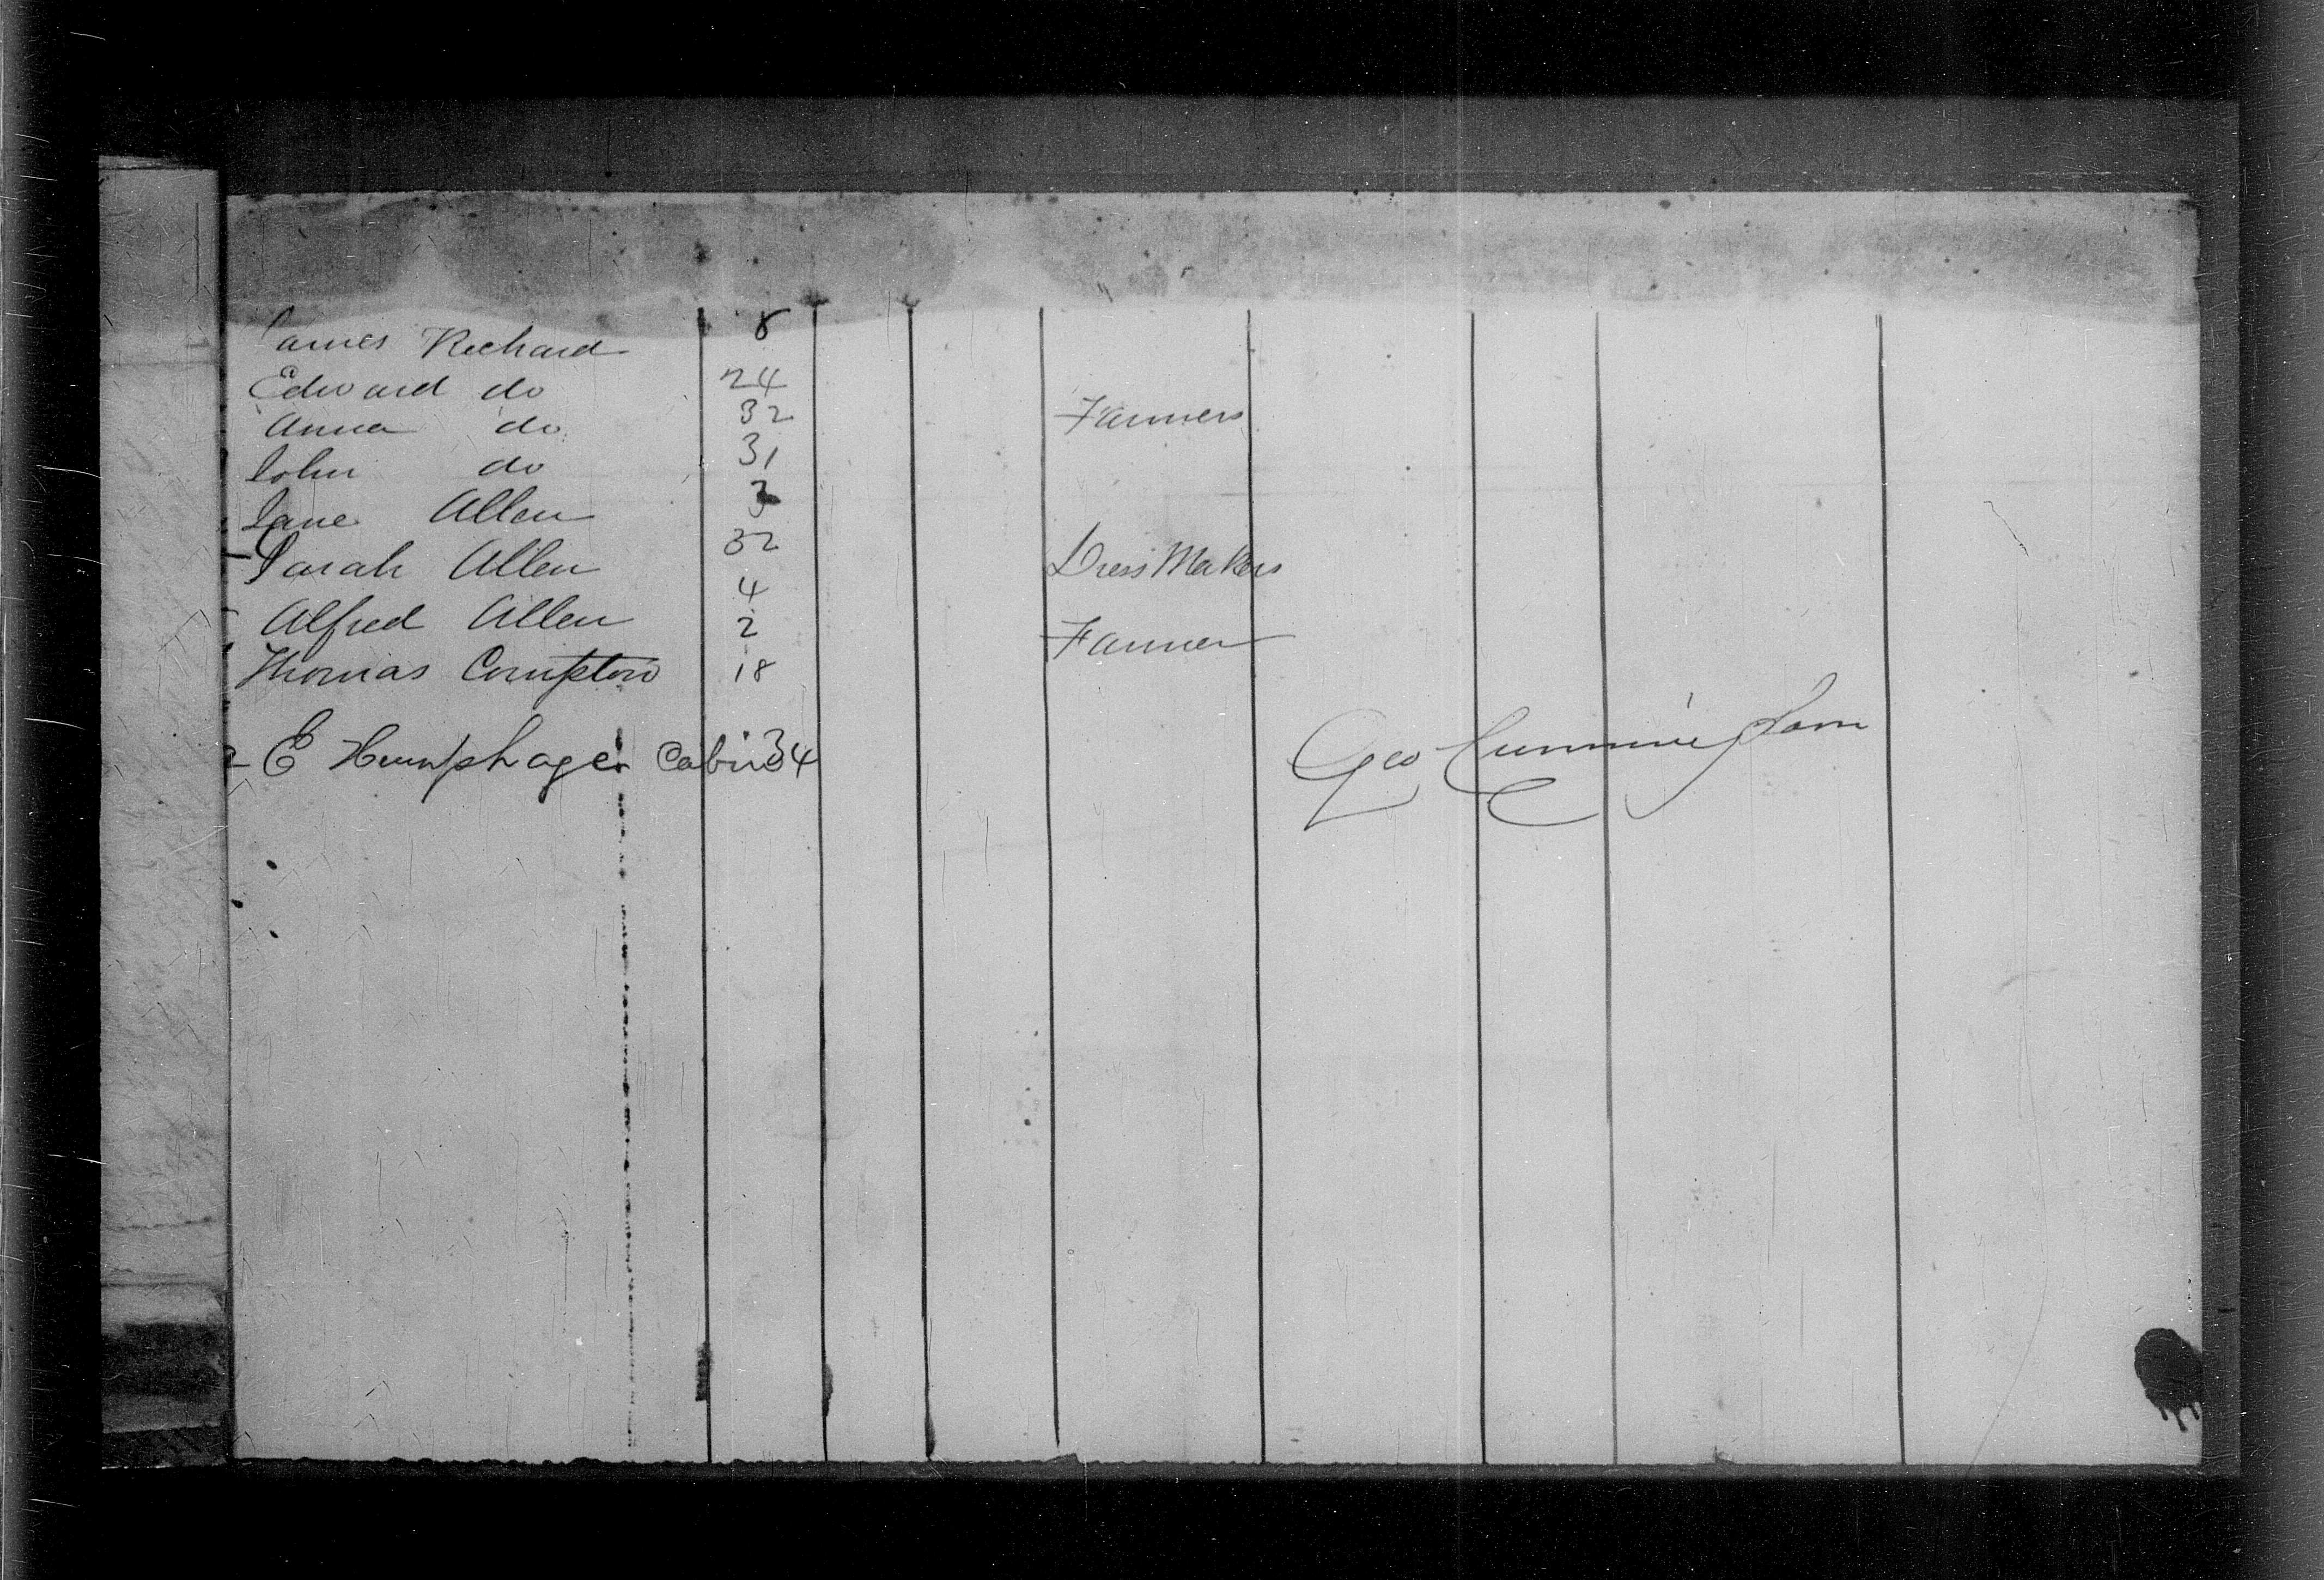 James Richard 8
Edward do 24
Anna do 32 Farmers
John do 31
Jane Allen 3
Sarah Allen 32 Dress Makers
Alfred Allen 4
2 Farmer
Thomas Compton 18
E Humphage Cabin 34 Geo Cunningham